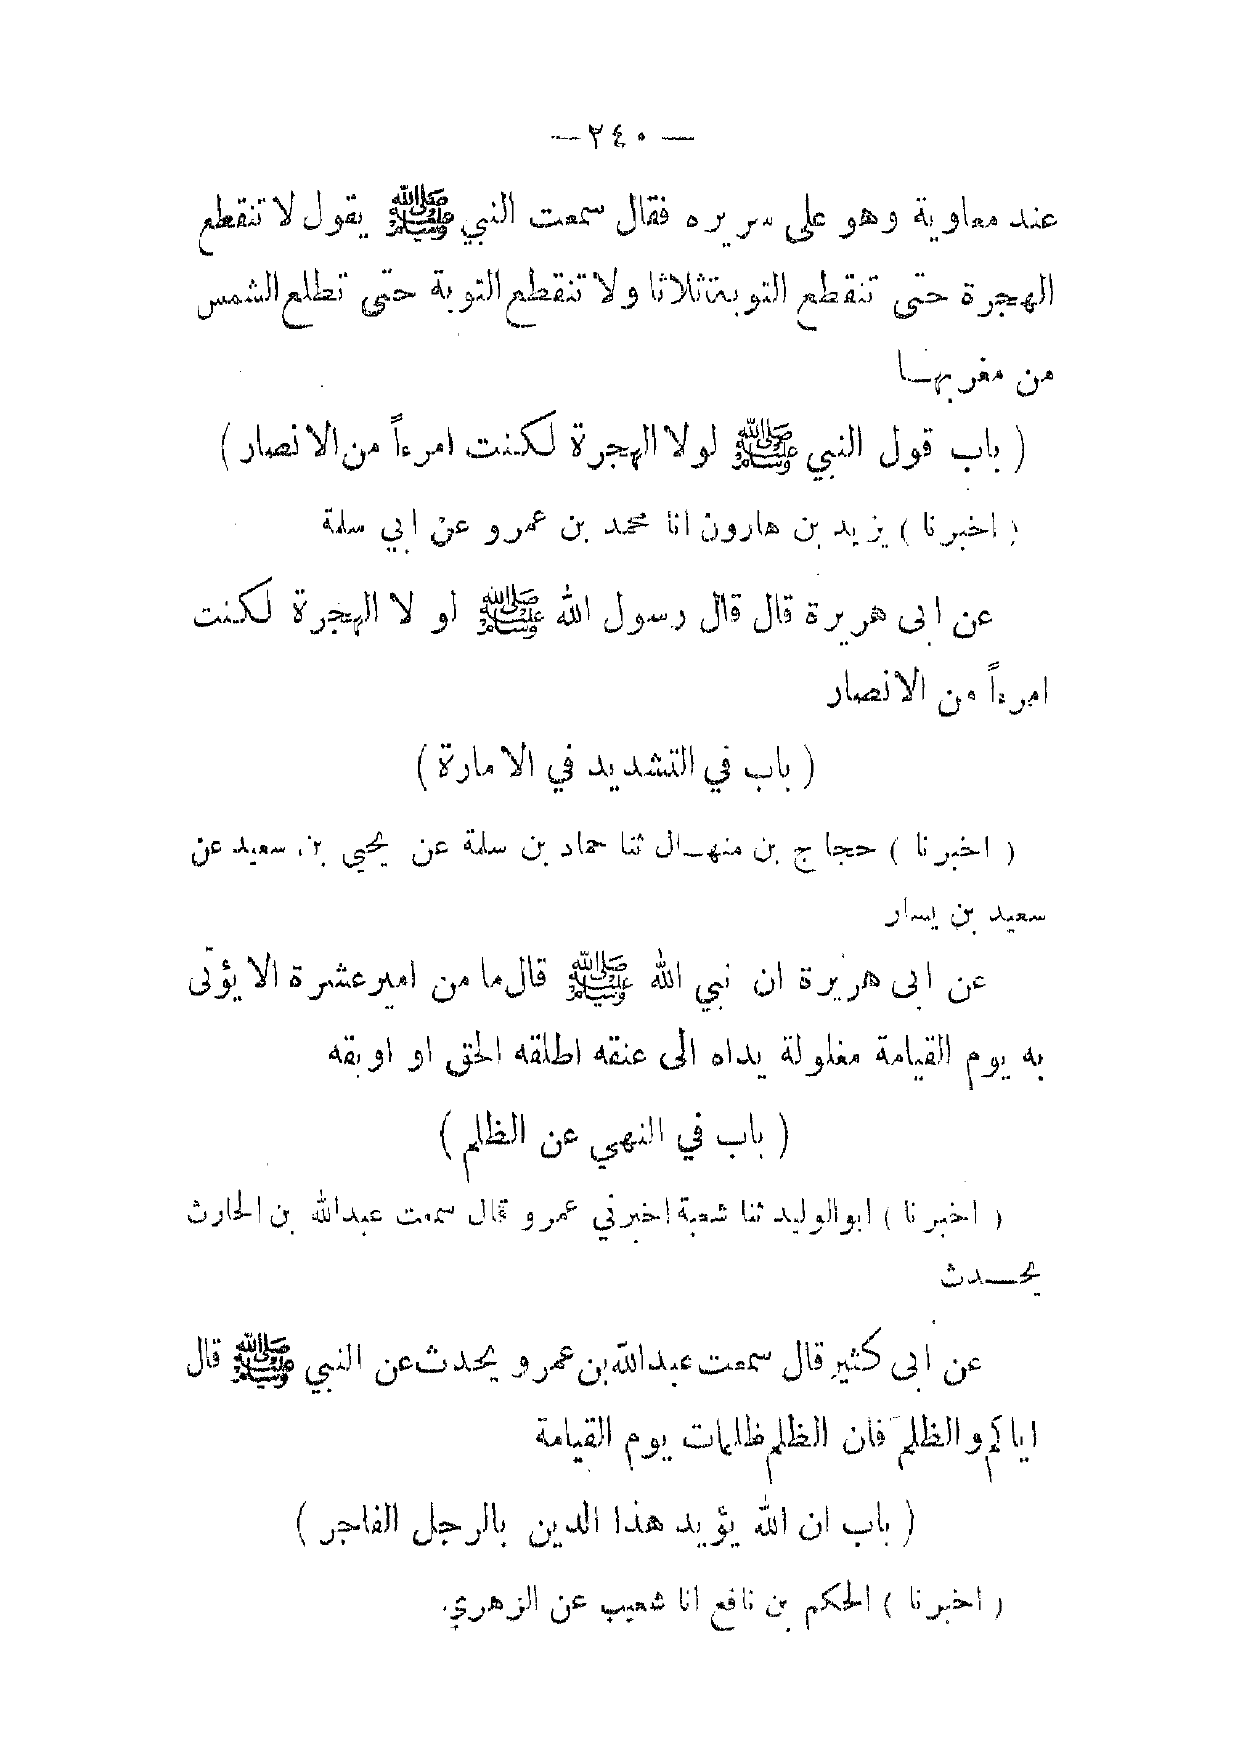 — ٢٤٠ —
عند معاوية وهو على سريره فقال سمعت النبي ﷺ يقول لا تنقطع
الهجرة حتى تنقطع التوبة ثلاثا ولا تنقطع التوبة حتى تطلع الشمس
من مغربها
( باب قول النبي ﷺ لولا الهجرة لكنت امرءاً من الانصار )
( اخبرنا ) يزيد بن هارون انا محمد بن عمرو عن ابي سلمة
عن ابى هريرة قال قال رسول الله ﷺ لو لا الهجرة لكنت
امرءاً من الانصار
( باب في التشديد في الامارة )
( اخبرنا ) حجاج بن منهال ثنا حماد بن سلمة عن يحيي بن سعيد عن
سعيد بن يسار
عن ابى هريرة ان نبي الله ﷺ قال ما من امير عشرة الا يؤتى
به يوم القيامة مغلولة يداه الى عنقه اطلقه الحق او اوبقه
( باب في النهي عن الظلم )
( اخبرنا ) ابو الوليد ثنا شعبة اخبرني عمرو قال سمعت عبدالله بن الحارث
يحدث
عن ابى كثير قال سمعت عبدالله بن عمرو يحدث عن النبي ﷺ قال
اياكم والظلم فان الظلم ظلمات يوم القيامة
( باب ان الله يؤيد هذا الدين بالرجل الفاجر )
( اخبرنا ) الحكم بن نافع انا شعيب عن الزهري.